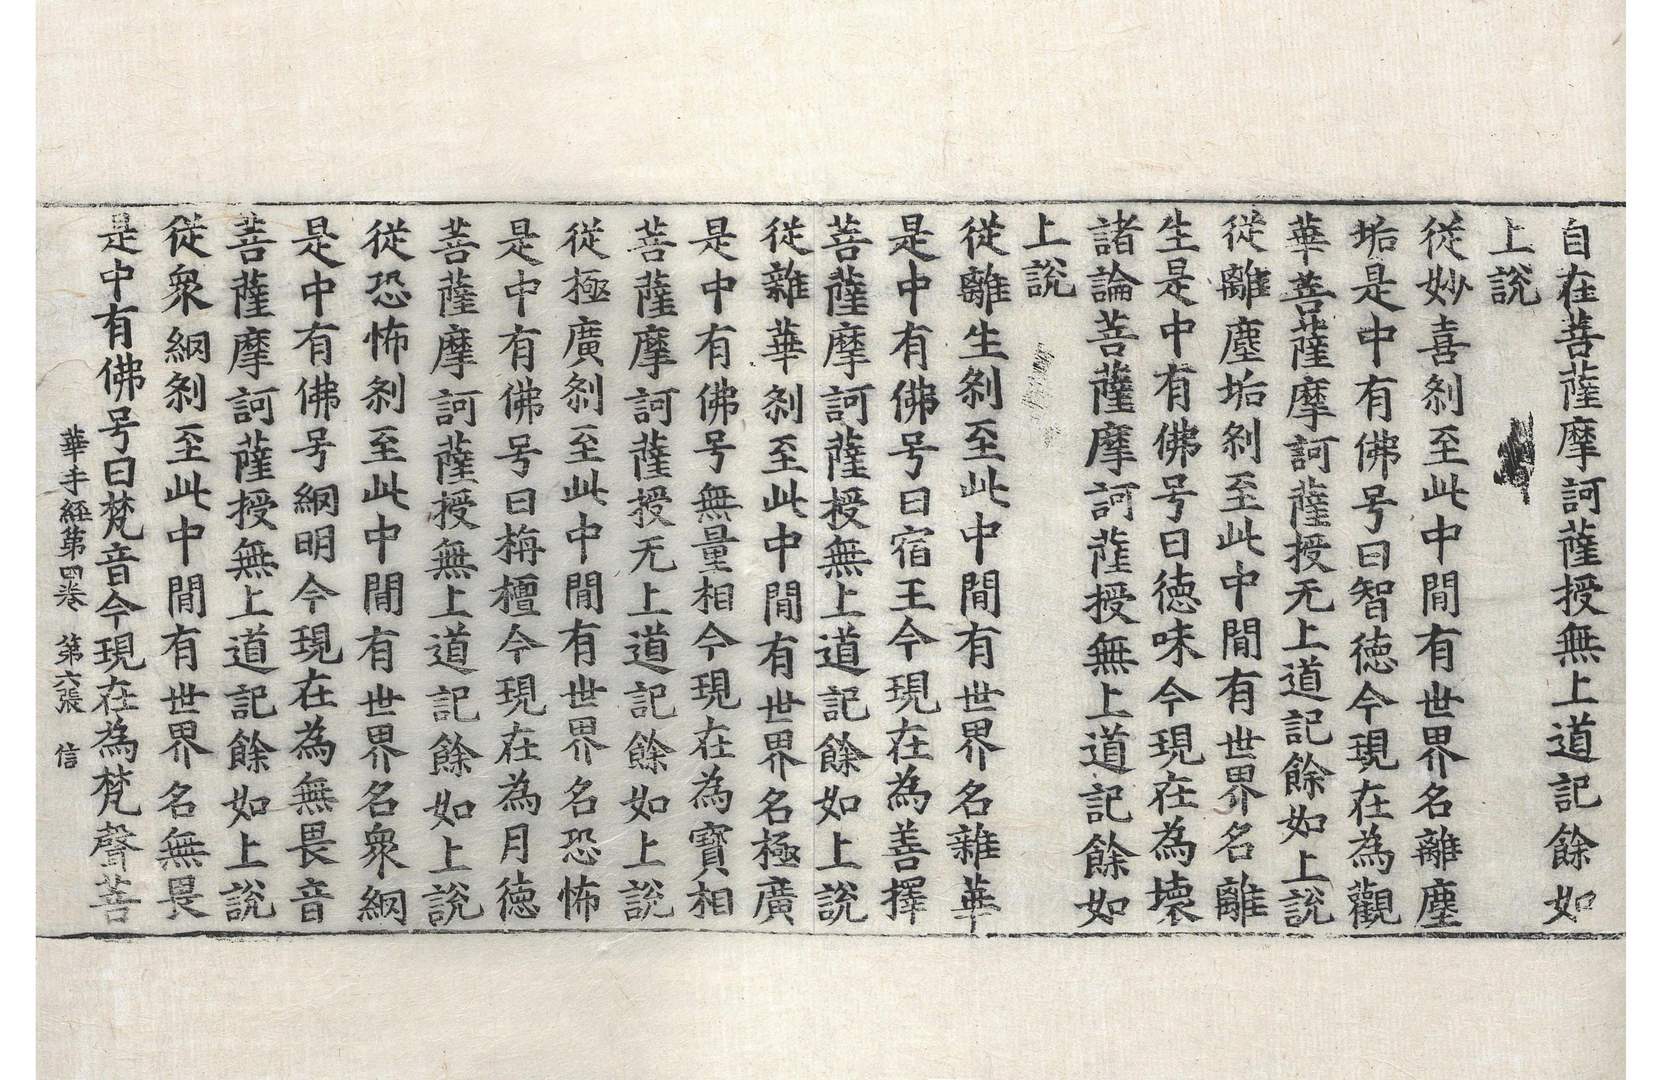 自在菩薩摩訶薩授無上道記餘如
上說
從妙喜刹至此中間有世界名離塵
垢是中有佛号曰智德今現在為觀
華菩薩摩訶薩授无上道記餘如上說
從離塵垢刹至此中間有世界名離
生是中有佛号曰德味今現在為壞
諸論菩薩摩訶薩授無上道記餘如
上說
從離生刹至此中間有世界名雜華
是中有佛号曰宿王今現在為善擇
菩薩摩訶薩授無上道記餘如上說
從雜華刹至此中間有世界名極廣
是中有佛号無量相今現在為寶相
菩薩摩訶薩授无上道記餘如上說
從極廣刹至此中間有世界名恐怖
是中有佛号曰栴檀今現在為月德
菩薩摩訶薩授無上道記餘如上說
從恐怖刹至此中間有世界名衆網
是中有佛号網明今現在為無畏音
菩薩摩訶薩授無上道記餘如上說
從衆網刹至此中間有世界名無畏
是中有佛号曰梵音今現在為梵聲菩
華手經第四卷 第六張 信